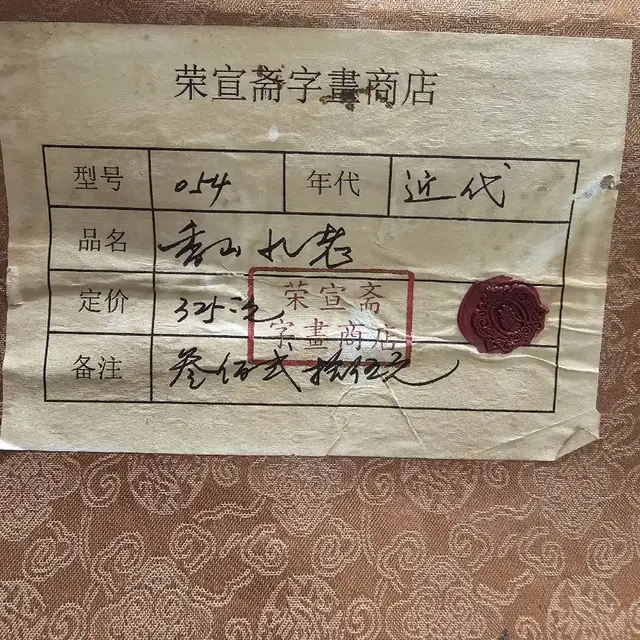 荣宣斋字畫商店
型号 054 年代 近代
品名 香山九老
定价 325元
荣宣斋
字畫商店
备注 叁佰贰拾伍元